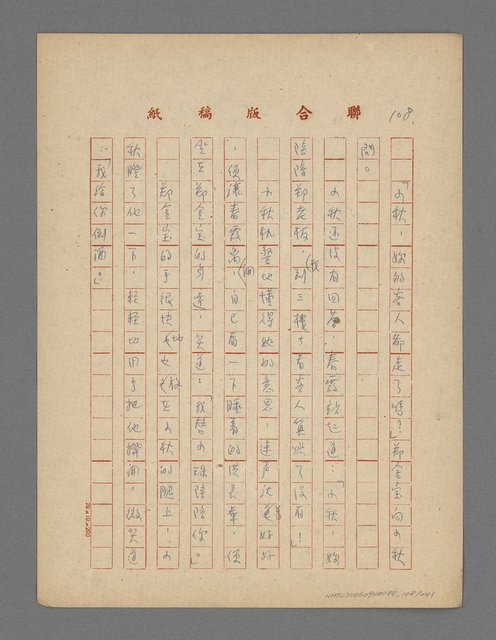 聯合版稿紙
108.
「小秋，妳的客人都走了嗎？」鄭金宝向小秋
問。
小秋还沒有回答，春霞就起道：「小秋，妳
陪陪鄭老板，我到三樓去看客人算賬了沒有！」
小秋机警地懂得她的意思，連声说好好
，便讓春霞离開，自己看一下睡着的洪長華，便
坐在鄭金宝的身邊，笑道：「我替小珠陪陪你。」
鄭金宝的手很快地也放在小秋的腿上，小
秋瞪了他一下，輕輕地用手把他撂開，微笑道
：「我給你倒酒。」
20×10=200
108/241